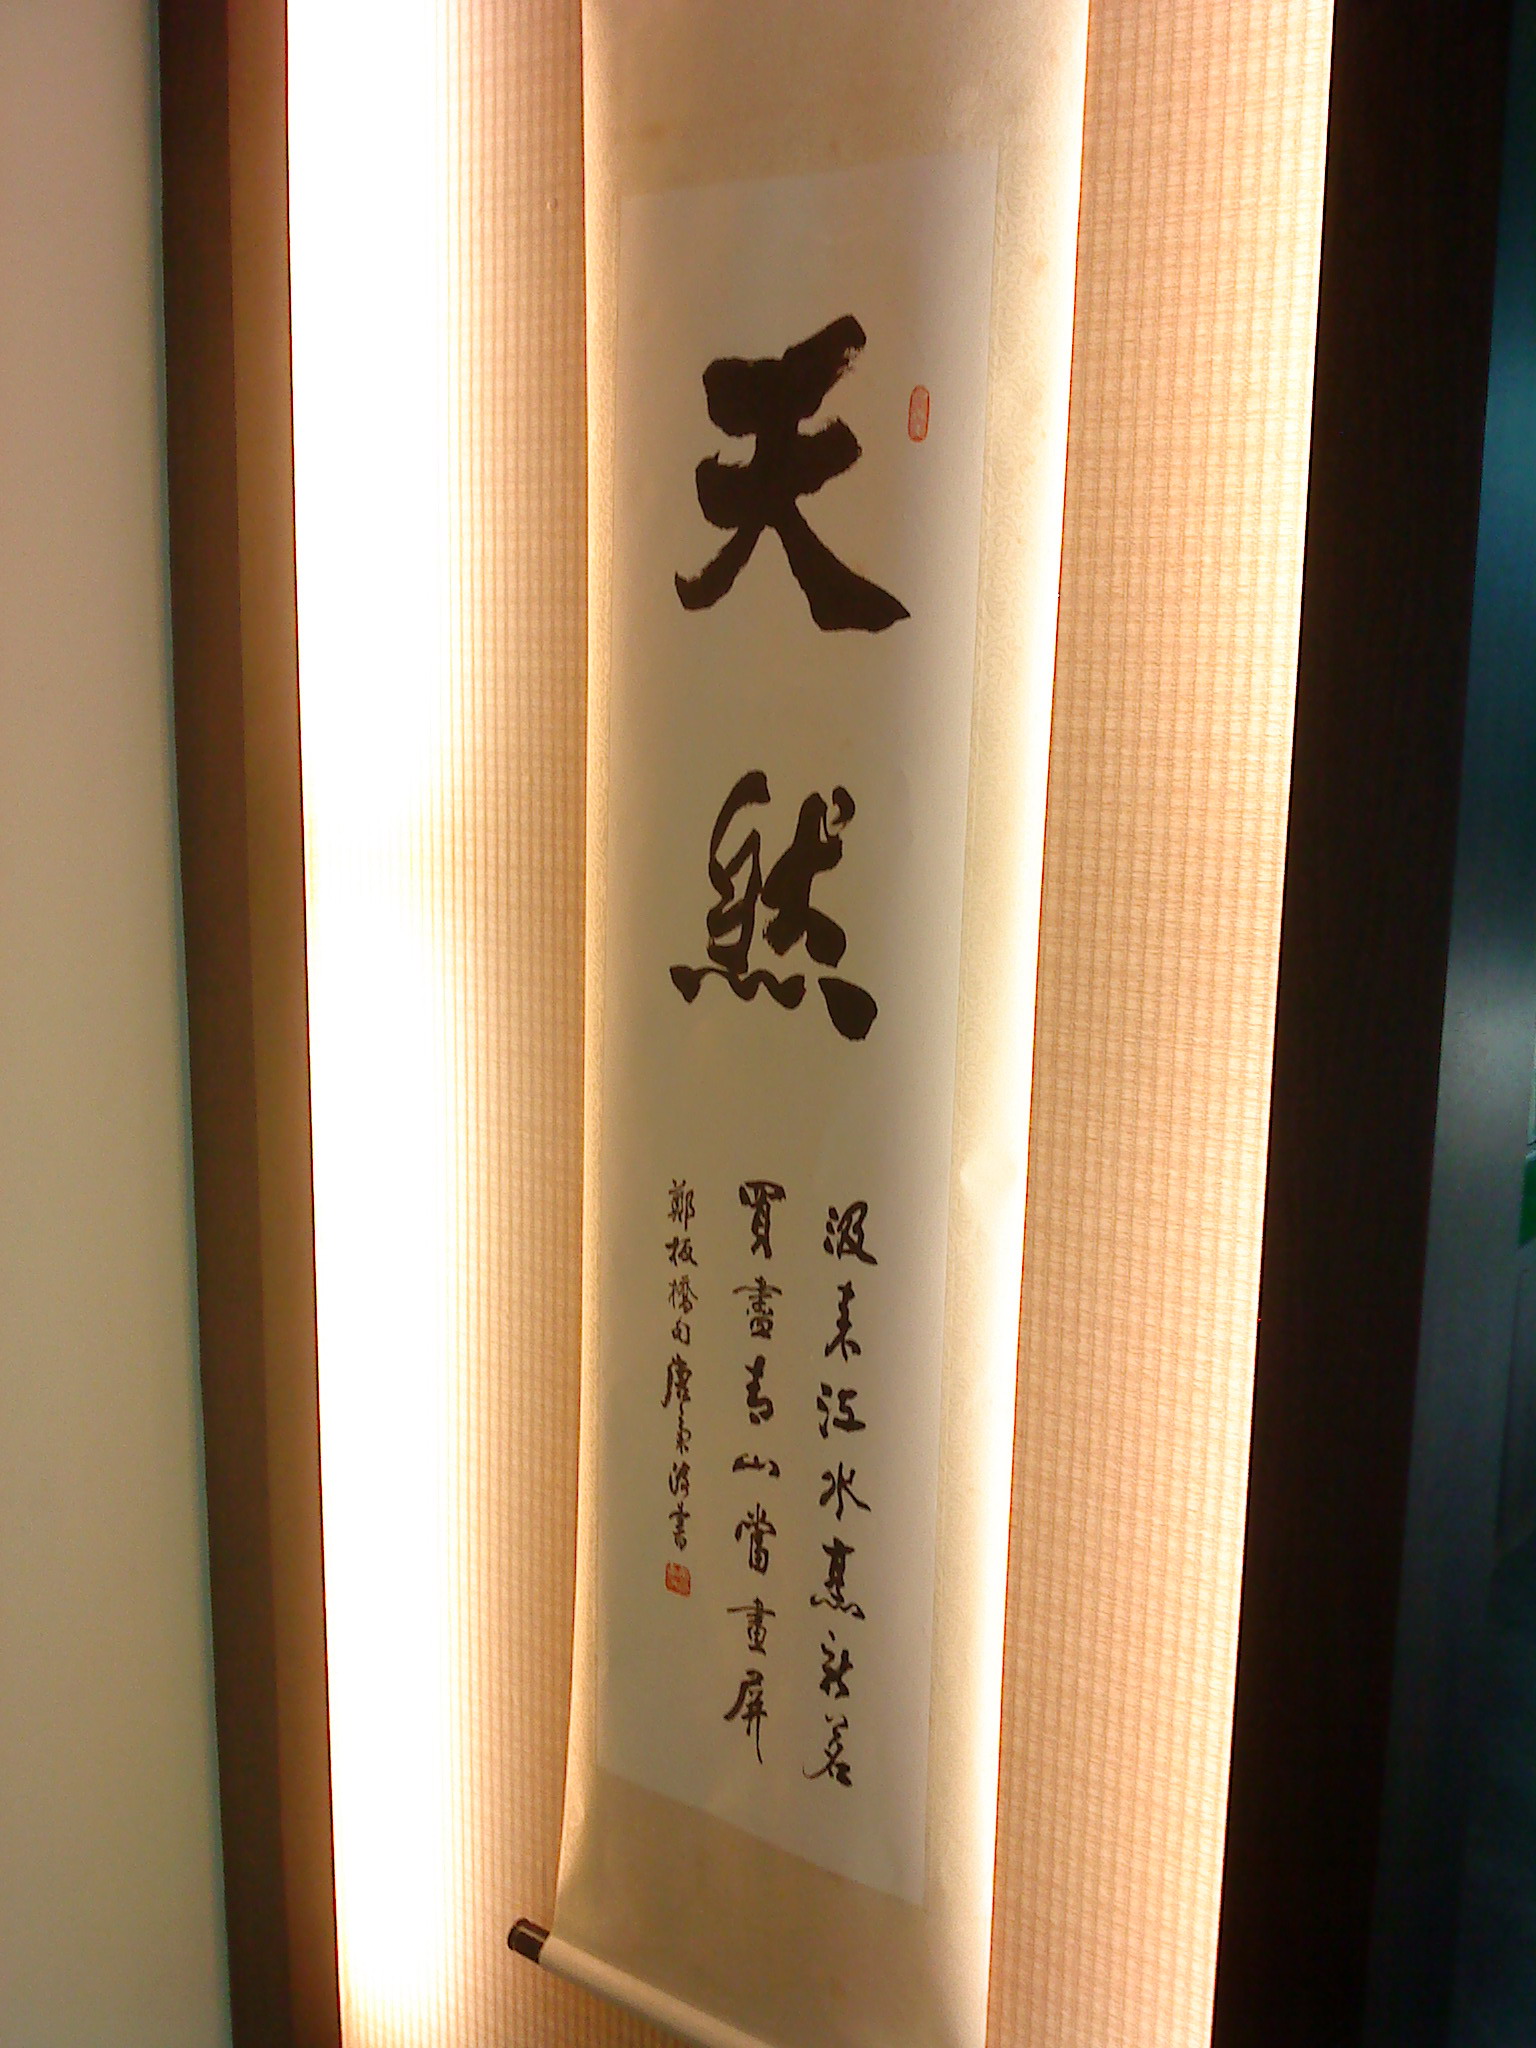 天然
汲来江水烹新茗
買盡青山當畫屏
鄭板橋句 唐
書